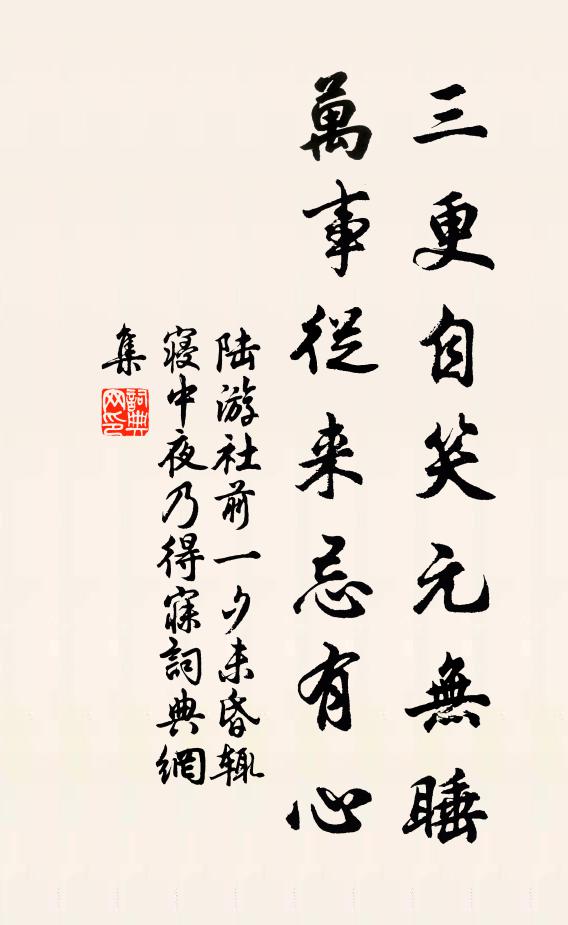 三更自笑元無睡
萬事從来忌有心
陆游社前一夕未昏輒
寝中夜乃得寐詞典網
集
詞典
网印